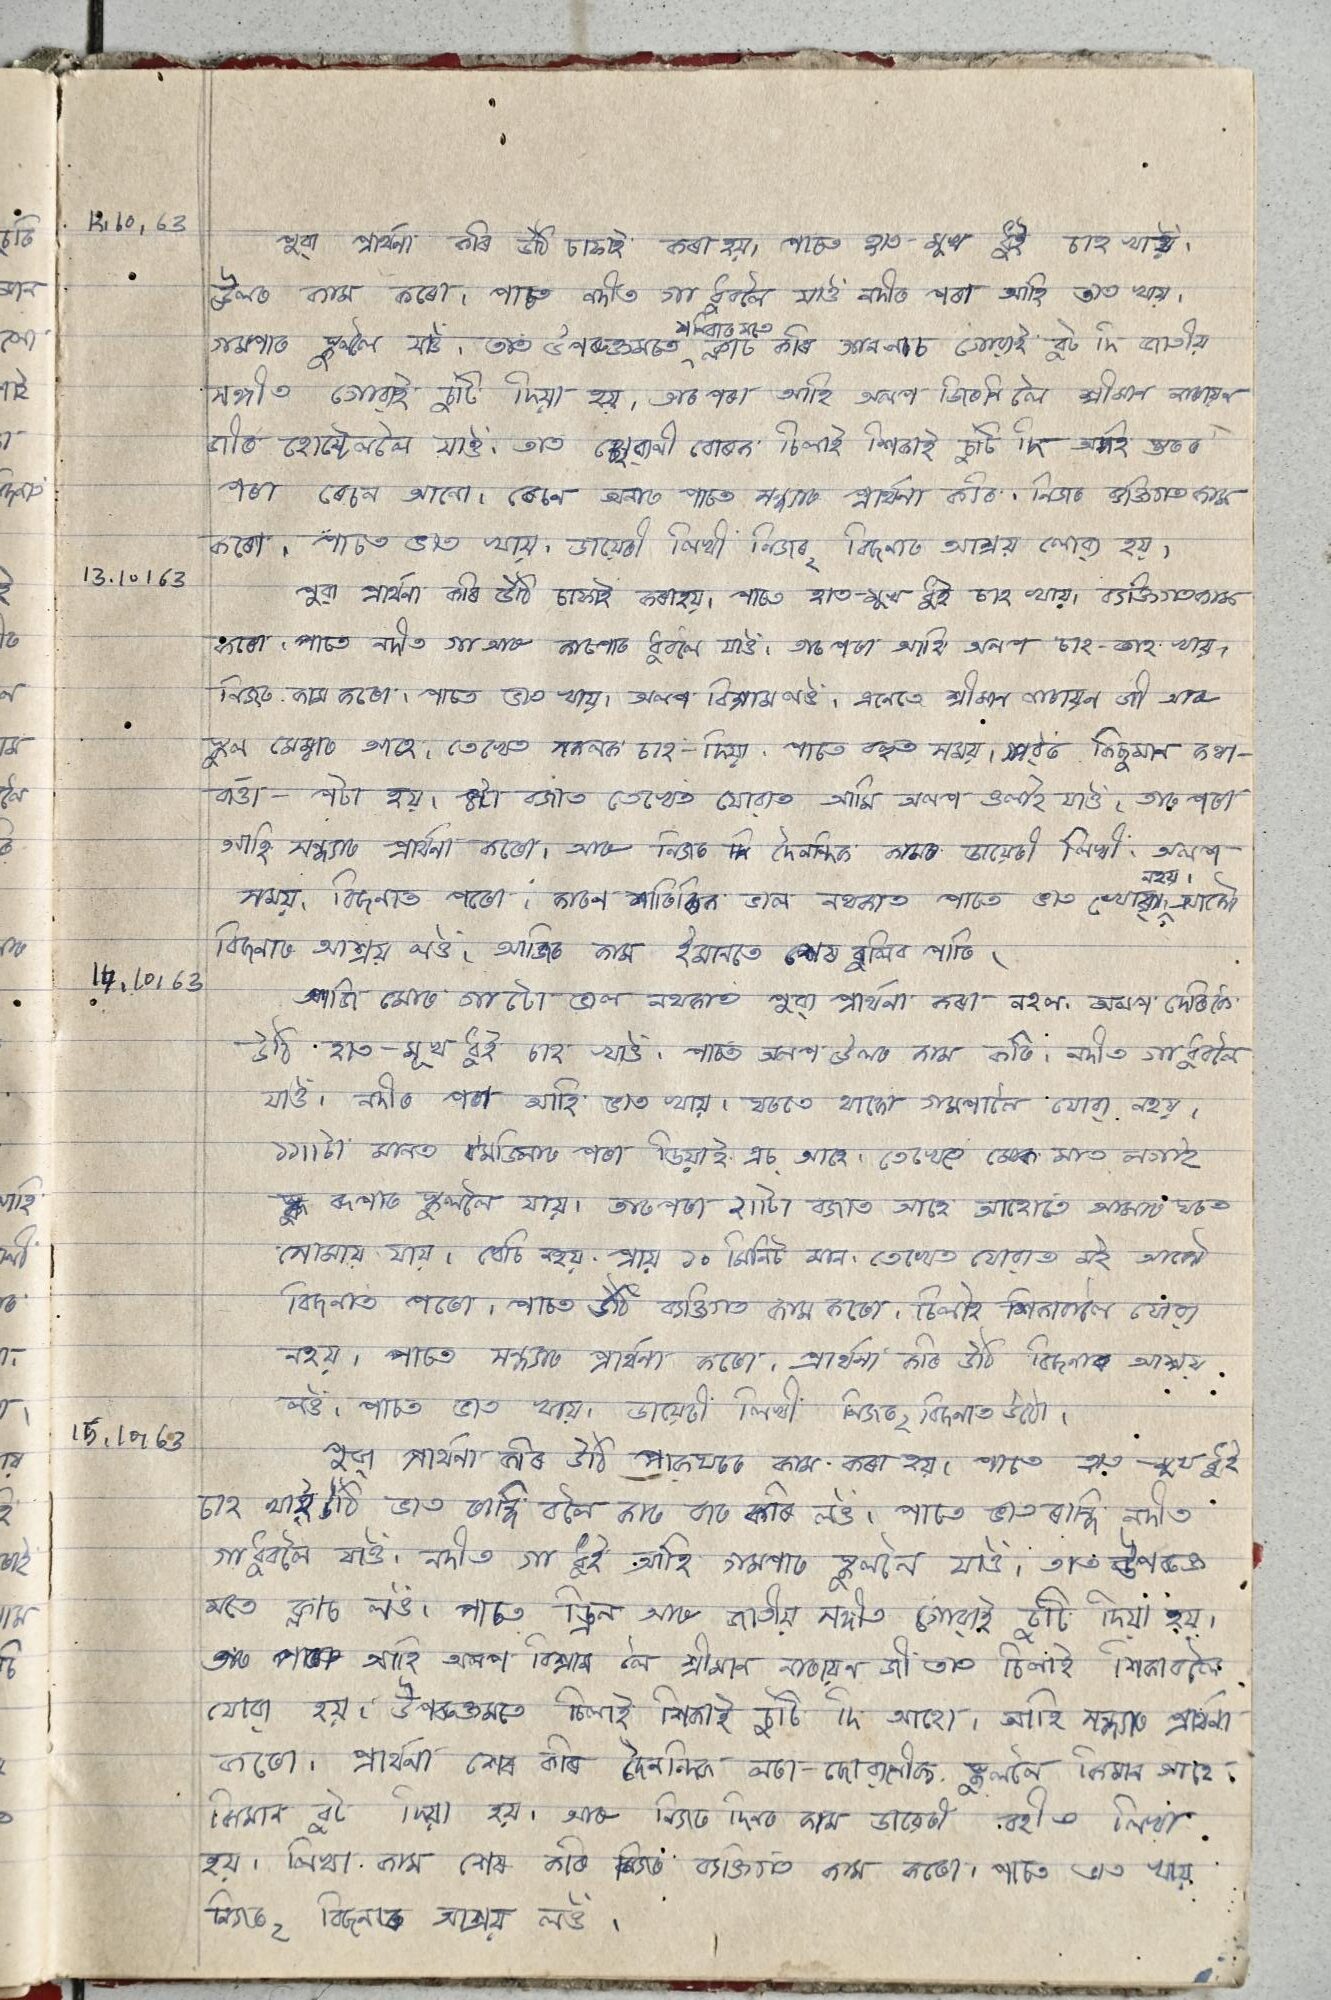 12.10.63
পুৱা প্ৰাৰ্থনা কৰি উঠি চাফাই কৰা হয়। পাচত হাত-মুখ ধুই চাহ খায়।
উলৰ কাম কৰো। পাচত নদীত গা ধুবলৈ যাওঁ নদীৰ পৰা আহি ভাত খায়।
গমপাত স্কুললৈ যাওঁ। তাত উপৰুক্তমতে
শনিবাৰ মতে
ক্লাচ কৰি গোৱাই বুট দি জাতীয়
সঙ্গীত গোৱাই চুটি দিয়া হয়। তাৰ পৰা আহি অলপ জিৰণি লৈ শ্ৰীমান নাৰায়ন
জীৰ হোষ্টেললৈ যাওঁ। তাত চিলাই শিকাই চুটি দি আহি
পৰা ৰেচন আনো। ৰেচন অনাৰ পাচত সন্ধ্যাত প্ৰাৰ্থনা কৰি। নিজৰ ব্যক্তিগত কাম
কৰো। পাচত ভাত খায়। ডায়েৰী লিখী নিজৰ২ বিচনাত আশ্ৰয় লোৱা হয়।
13.10.63
পুৱা প্ৰাৰ্থনা কৰি উঠি চাফাই কৰাহয়। পাচত হাত-মুখ ধুই চাহ খায়। ব্যক্তিগতকাম
কৰো। পাচত নদীত গা আৰু কাপোৰ ধুবলৈ যাওঁ। তাৰ পৰা আহি অলপ চাহ-তাহ খায়।
নিজৰ কাম কৰো। পাচত ভাত খায়। অলপ বিশ্ৰাম লওঁ। এনেতে শ্ৰীমান নাৰায়ন জী আৰু
স্কুল মেম্বাৰ আহে। তেখেত সকলক চাহ-দিয়া। পাচত বহুত সময়। কিছুমান কথা-
বৰ্ত্তা-পটা হয়। বজাত তেখেত যোৱাত আমি অলপ ওলাই যাওঁ। তাৰ পৰা
আহি সন্ধ্যাত প্ৰাৰ্থনা কৰো। আৰু নিজৰ দৈনন্দিন কামৰ ডায়েৰী লিখী। অলপ
সময়। বিচনাত পৰো। কাৰণ শাৰিৰিক ভাল নথকাত পাচত ভাত খোৱা
নহয়।
বিচনাত আশ্ৰয় লওঁ। আজিৰ কাম ইমানতে শেষ বুলিব পাৰি।
14.10.63
আজি মোৰ গা টো ভাল নথকাত পুৱা প্ৰাৰ্থনা কৰা নহল। অলপ দেৰিকৈ
উঠি হাত-মুখ ধুই চাহ খাওঁ। পাচত অলপ উলৰ কাম কৰি। নদীত গা ধুবলৈ
যাওঁ। নদীৰ পৰা আহি ভাত খায়। ঘৰতে থাকো গমপালৈ যোৱা নহয়।
১১॥টা মানত পৰা ডিয়াই এচ্ আহে। তেখেত মাত লগাই
ৰূপাৰ স্কুললৈ যায়। তাৰপৰা ২॥টা বজাত আহে আহোতে আমাৰ ঘৰত
সোমায় যায়। বেচি নহয় প্ৰায় ১০ মিনিট মান। তেখেত যোৱাত মই আকৌ
বিচনাত পৰো। পাচত উঠি ব্যক্তিগত কাম কৰো। চিলাই শিকাবলৈ যোৱা
নহয়। পাচত সন্ধ্যাত প্ৰাৰ্থনা কৰো। প্ৰাৰ্থনা কৰি উঠি বিচনাৰ আশ্ৰয়
লওঁ। পাচত ভাত খায়। ডায়েৰী লিখী নিজৰ২ বিচনাত উঠো।
15.10.63
পুৱা প্ৰাৰ্থনা কৰি উঠি পাকঘৰৰ কাম কৰা হয়। পাচত হাত-মুখ ধুই
চাহ খাই উঠি ভাত ৰান্ধি বলৈ কাৰ বাৰ কৰি লওঁ। পাচত ভাত ৰান্ধি নদীত
গা ধুবলৈ যাওঁ। নদীত গা ধুই আহি গমপাত স্কুললৈ যাওঁ। তাত উপৰুক্ত
মতে ক্লাচ লওঁ। পাচত ড্ৰিল আৰু জাতীয় সঙ্গীত গোৱাই চুটি দিয়া হয়।
তাৰ পৰা আহি অলপ বিশ্ৰাম লৈ শ্ৰীমান নাৰায়ন জী তাত চিলাই শিকাবলৈ
যোৱা হয়। উপৰুক্তমতে চিলাই শিকাই চুটি দি আহো। আহি সন্ধ্যাত প্ৰাৰ্থনা
কৰো। প্ৰাৰ্থনা শেষ কৰি দৈনন্দিন লৰা-ছোৱালীক স্কুললৈ কিমান আহে।
কিমান বুট দিয়া হয়। আৰু নিজৰ দিনৰ কাম ডায়েৰী বহীত লিখা
হয়। লিখা কাম শেষ কৰি নিজৰ ব্যক্তিগত কাম কৰো। পাচত ভাত খায়
নিজৰ২ বিচনাত আশ্ৰয় লওঁ।